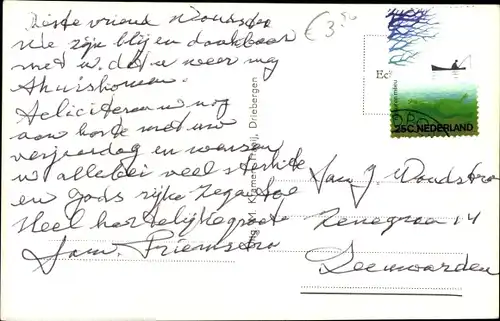 Beste vriend Woudstra
We zijn blij en dankbaar
met u dat u weer mag
thuiskomen.
Feliciteren u nog
aan beste met uw
verjaardag en wensen
u allebei veel sterkte
en Gods rijke zegen toe
Heel hartelijke groet
Fam. Priemstra
€ 3,50
Ec
25C NEDERLAND
Kramers Driebergen
Fam J. Woudstra
14
Leeuwarden